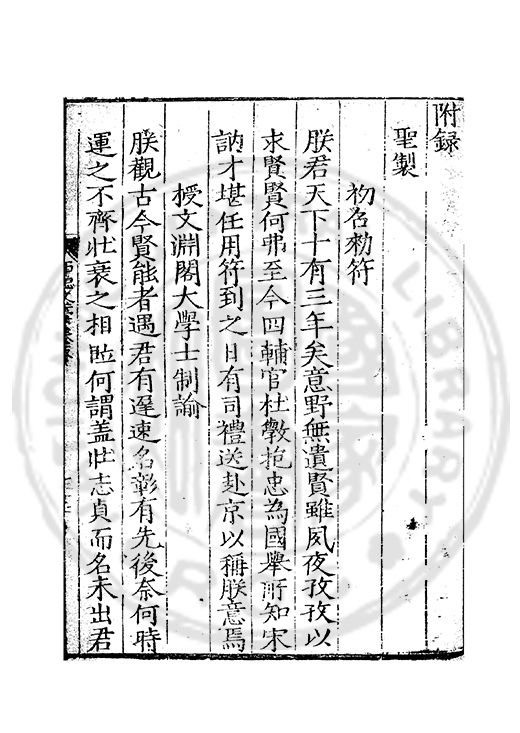 附録
聖製
初召勅符
朕君天下十有三年矣意野無遺賢雖夙夜孜孜以
求賢賢何弗至今四輔官杜斆抱忠為國舉所知宋
訥才堪任用符到之日有司禮送赴京以稱朕意焉
授文淵閣大學士制諭
朕觀古今賢能者遇君有遲速名彰有先後奈何時
運之不齊壯衰之相&#xFEFF;何謂盖壯志貞而名未出君